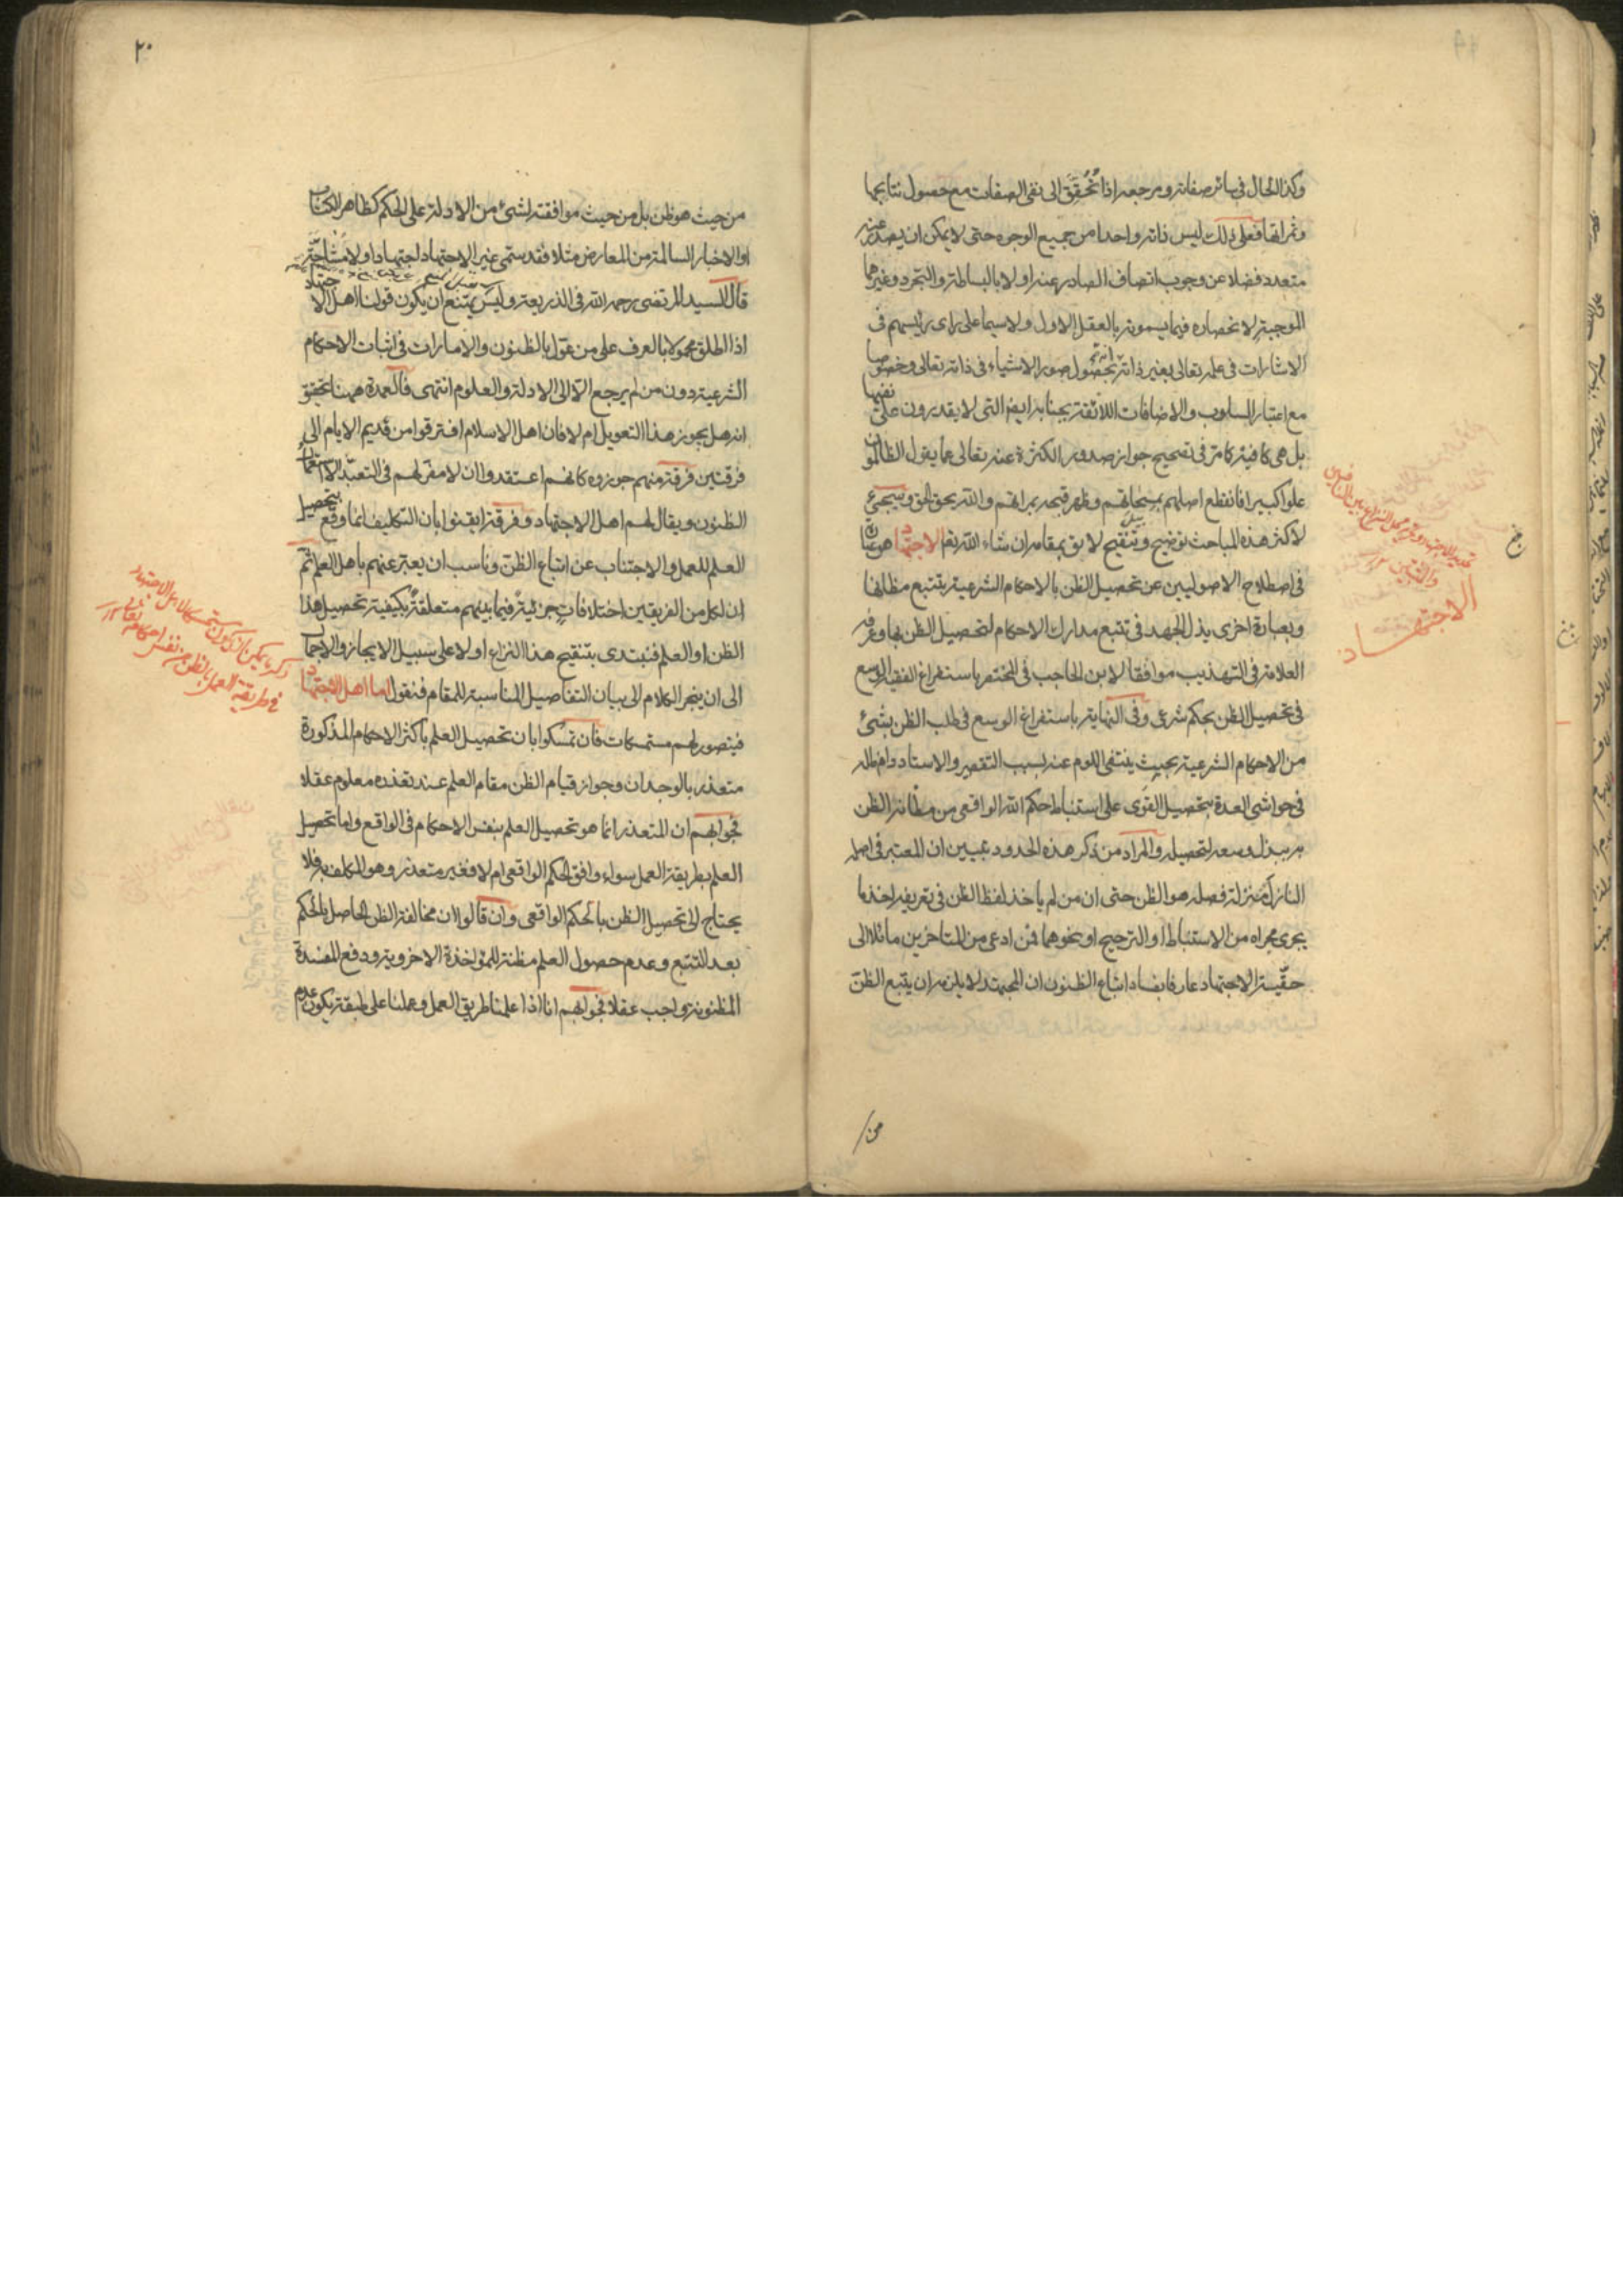 وكذا الحال في سائر صفاته ومرجعه اذا تُحُقِّقَ الى نفى الصفات مع حصول نتايجها
وثمراتها فعلى ذلك ليس ذاته واحدا من جميع الوجوه حتى لا يمكن ان يصدر عنه
متعدد فضلا عن وجوب اتصاف الصادر عنه اولا بالبساطة والتجرد وغيرهما
الموجبة لانحصاره فيما يسمونه بالعقل الاول ولا سيما على راى رئيسهم فى
الاشارات فى علمه تعالى بغير ذاته انه بحصول صور الاشياء فى ذاته تعالى وخصوصا
مع اعتبار السلوب والاضافات اللائقة بجنابه ايضا التى لا يقدرون على نفيها
بل هى كافية كامة فى تصحيح جواز صدور الكثرة عنه تعالى عما يقول الظالمون
علوا كبيرا فانقطع اصلهم وظهر قبحه والله يحق الحق وسيجئ
لاكثر هذه المباحث توضيح وتنقيح لائق بمقامه ان شاء الله تعم الاجتهاد هو عبارة
فى اصطلاح الاصوليين عن تحصيل الظن بالاحكام الشرعية بتتبع مظانها
وبعبارة اخرى بذل الجهد فى تتبع مدارك الاحكام لتحصيل الظن بها وعرفه
العلامة فى التهذيب موافقا لابن الحاجب فى المختصر باستفراغ الفقيه الوسع
فى تحصيل الظن بحكم شرعى وفى النهاية باستفراغ الوسع فى طلب الظن بشئ
من الاحكام الشرعية بحيث ينتفى اللوم عنه بسبب التقصير والاستاد دام ظله
فى حواشى العدة بتحصيل القوى على استنباط حكم الله الواقعى من مظانه الظن
به ببذل وسعه لتحصيله والمراد من ذكر هذه الحدود تبيين ان المعتبر فى اصله
النازل منزلة فصله هو الظن حتى ان من لم ياخذ لفظ الظن فى تعريفه اخذ ما
يجرى مجراه من الاستنباط او الترجيح او نحوهما فمن ادعى من المتاخرين مائلا الى
حقيّة الاجتهاد عارفا بفساد اتباع الظنون ان المجتهد لا يلزمه ان يتبع الظن
من
الاجتهاد
٢٠
من حيث هو ظن بل من حيث موافقته لشئ من الادلة على الحكم كظاهر الكتاب
او الاخبار السالمة من المعارض مثلا فقد سمى غير الاجتهاد اجتهادا ولا مشاحة
قال السيد المرتضى رحمه الله فى الذريعة وليس يمتنع ان يكون قولنا اهل الاجتهاد
اذا اطلق محمولا بالعرف على من عوّل بالظنون والامارات فى اثبات الاحكام
الشرعية دون من لم يرجع الّا الى الادلة والعلوم انتهى فالعمدة ههنا تحقيق
انه هل يجوز هذا التعويل ام لا فان اهل الاسلام افترقوا من قديم الايام الى
فرقتين فرقة منهم جوزوه كانهم اعتقدوا ان لا مفر لهم فى التعبد الا استعمال
الظنون ويقال لهم اهل الاجتهاد وفرقة ايقنوا بان التكليف انما وقع بتحصيل
العلم للعمل والاجتناب عن اتباع الظن وناسب ان يعبر عنهم باهل العلم ثم
ان لكل من الفريقين اختلافات جزئية فيما بينهم متعلقة بكيفية تحصيل هذا
الظن او العلم فنبتدى بتنقيح هذا النزاع اولا على سبيل الايجاز والاجمال
الى ان ينجر الكلام الى بيان التفاصيل المناسبة للمقام فنقول اما اهل الاجتهاد
فيتصور لهم مستمسكات فان تمسكوا بان تحصيل العلم باكثر الاحكام المذكورة
متعذر بالوجدان وجواز قيام الظن مقام العلم عند تعذره معلوم عقلا
فجوابهم ان المتعذر انما هو تحصيل العلم بنفس الاحكام فى الواقع واما تحصيل
العلم بطريقة العمل سواء وافق الحكم الواقعى ام لا فغير متعذر وهو المكلف به فلا
يحتاج الى تحصيل الظن بالحكم الواقعى وان قالوا ان مخالفة الظن الحاصل بالحكم
بعد التتبع وعدم حصول العلم مظنة للمؤاخذة الاخروية ودفع المفسدة
المظنونة واجب عقلا فجوابهم انا اذا علمنا طريق العمل وعملنا على طبقه يكون عدم